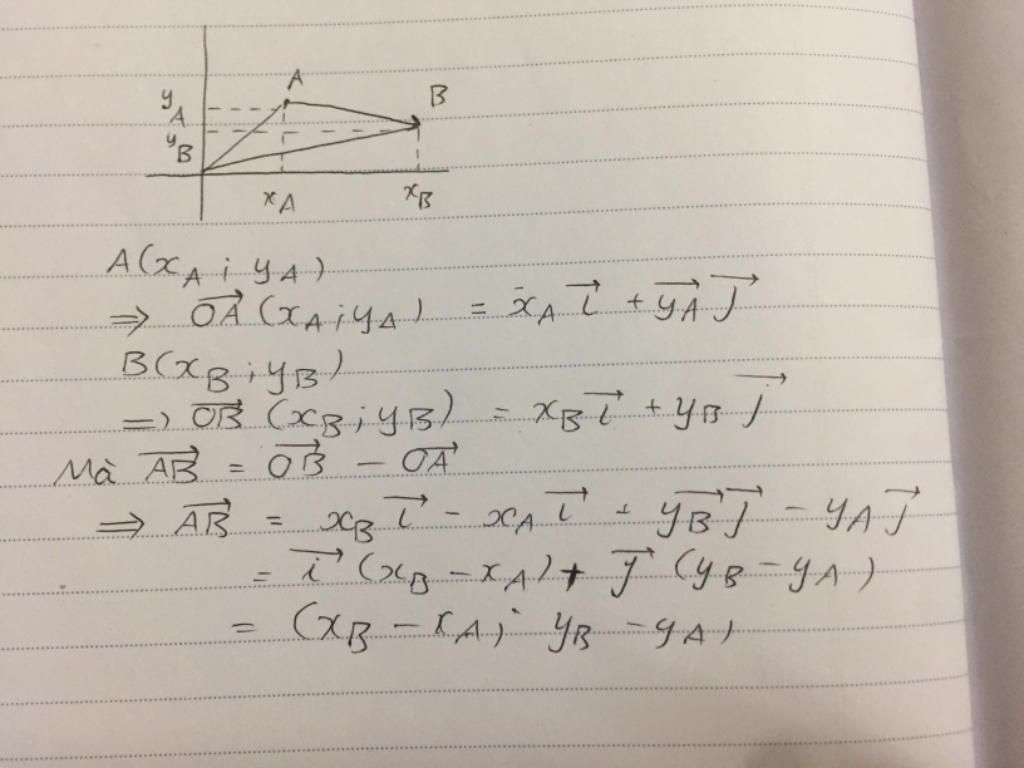 A
B
y_A
y_B
x_A
x_B
A(x_A ; y_A)
⇒ \overrightarrow{OA} (x_A ; y_A) = x_A \vec{i} + \overrightarrow{y_A} \vec{j}
B(x_B ; y_B)
⇒ \overrightarrow{OB} (x_B ; y_B) = x_B \vec{i} + y_B \vec{j}
Mà \overrightarrow{AB} = \overrightarrow{OB} - \overrightarrow{OA}
⇒ \overrightarrow{AB} = x_B \vec{i} - x_A \vec{i} + \overrightarrow{y_B} \vec{j} - y_A \vec{j}
= \vec{i} (x_B - x_A) + \vec{j} (y_B - y_A)
= (x_B - x_A ; y_B - y_A)